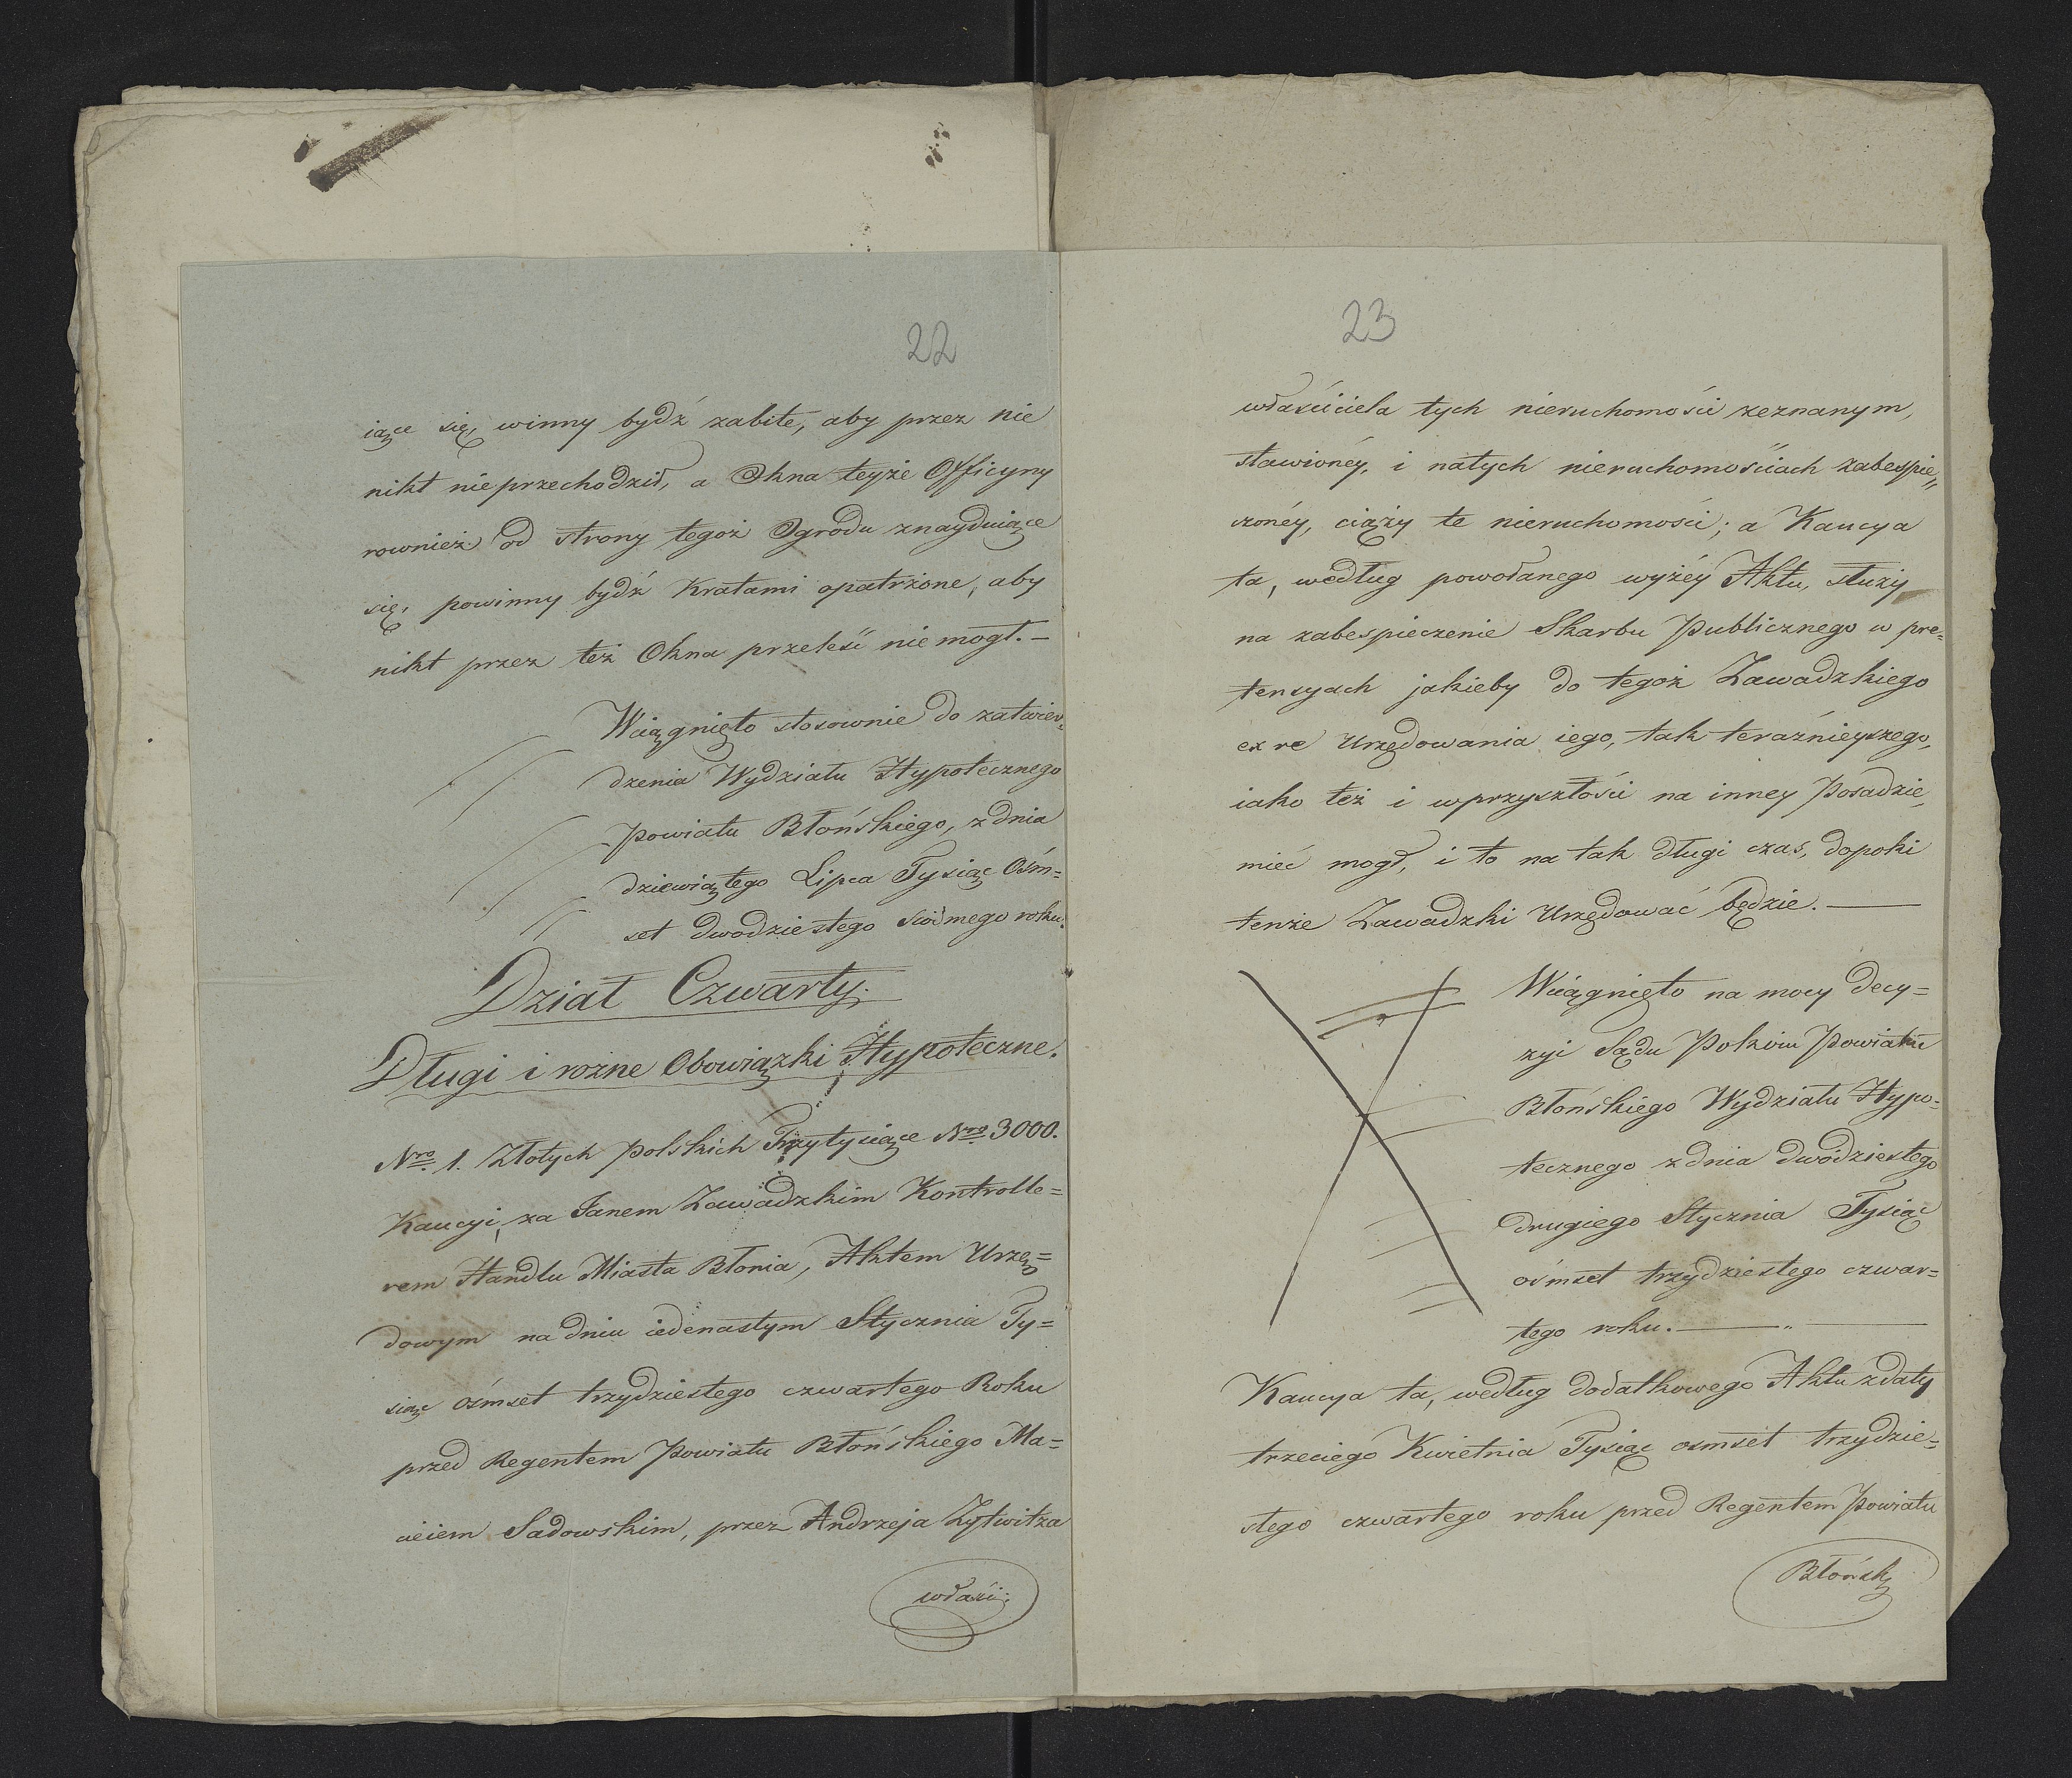 22
iące się, winny bydź zabite, aby przez nie
nikt nieprzechodził, a Okna teyże Officyny
rownież od strony tegoż Ogrodu znayduiące
się, powinny bydź Kratami opatrzone, aby
nikt przez też Okna przeleść niemogł. —
Wciągnięto stosownie do zatwier=
dzenia Wydziału Hypotecznego
Powiatu Błońskiego, z dnia
dziewiątego Lipca Tysiąc Ośm=
set dwodziestego siódmego roku.
Dział Czwarty.
Długi i rożne Obowiązki Hypoteczne.
Nro 1. Złotych Polskich Trzytysiące Nro 3000.
Kaucyi, za Janem Zawadzkim Kontrolle=
rem Handlu Miasta Błonia, Aktem Urzę=
dowym na dniu iedenastym Stycznia Ty=
siąc ośmset trzydziestego czwartego Roku
przed Regentem Powiatu Błońskiego Ma=
cieiem Sadowskim, przez Andrzeja Zytwitza
właści:
23
właściciela tych nieruchomości zeznanym,
stawionéy, i natych nieruchomościach zabespie„
czonéy, ciąży te nieruchomości; a Kaucya
ta, według powołanego wyżéy Aktu, służy
na zabespieczenie Skarbu Publicznego w pre=
tensyach jakieby do tegoż Zawadzkiego
ex re Urzędowania iego, tak teraźnieyszego,
iako też i wprzyszłości na inney Posadzie,
mieć mogł, i to na tak długi czas, dopoki
tenże Zawadzki Urzędować będzie. —
Wciągnięto na mocy decy=
zyi Sądu Pokoiu Powiatu
Błońskiego Wydziału Hypo=
tecznego z dnia dwódziestego
drugiego Stycznia Tysiąc
ośmset trzydziestego czwar=
tego roku. — „ —
Kaucya ta, według dodatkowego Aktu z daty
trzeciego Kwietnia Tysiąc osmset trzydzie=
stego czwartego roku przed Regentem Powiatu
Błońsk